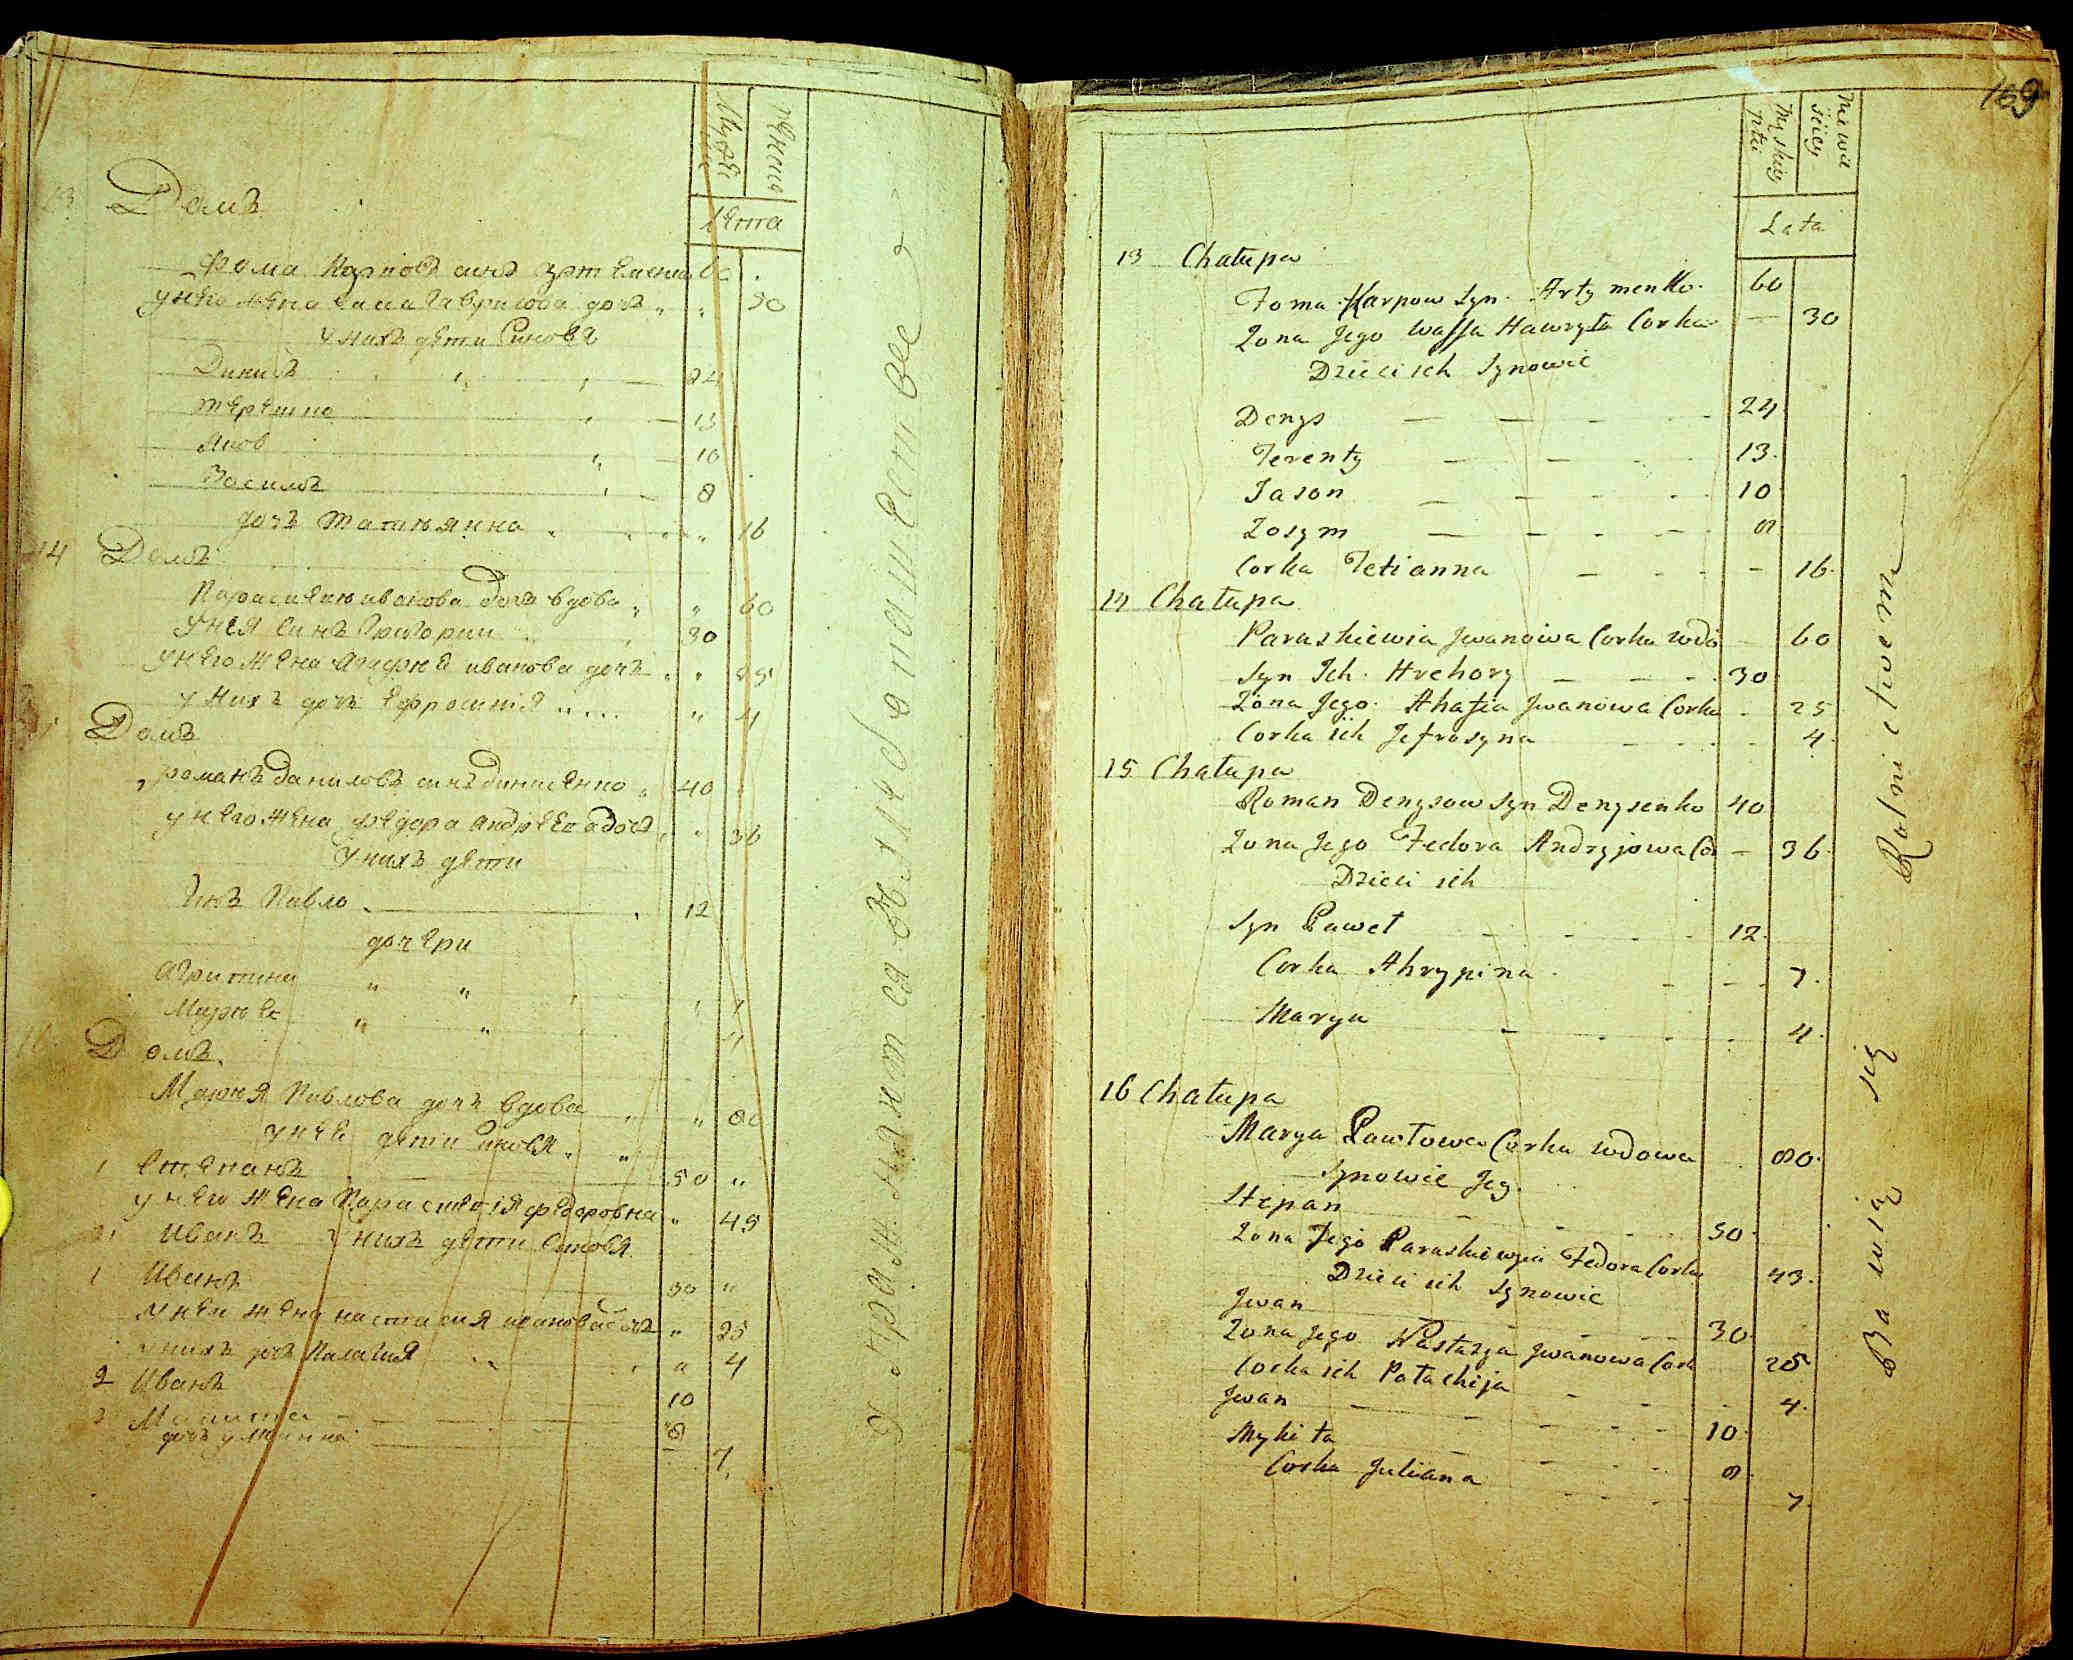 Мужеска
женска
лета
13 Домъ
Фома Карповъ синъ Артеменко 60
У него жена Васа Гаврилова дочъ 30
У нихъ дети Синовя
Динисъ 24
терешко 13
Яков 10
8
дочъ Татиянна 16
14 Домъ
Параскевия иванова дочъ вдова 60
У нея Синъ Григории 30
У него жена Агафия иванова дочъ 25
У нихъ дочъ Ефросиния 4
Домъ
романъ даниловъ синъ Динисенко 40
У него жена федора андреева дочъ 36
У нихъ дети
Синъ Павло 12
дочери
Агрипина 7
Мария 4
16 Домъ
Мария Павлова дочъ вдова 80
У нея дети Синовя
1 Степанъ 50
У него жена Параскевия федоровна 45
2 Иванъ У нихъ дети Синовя
1 Иванъ 30
У него жена настасия иванова дочъ 25
У нихъ дочъ Палагия 4
2 Иванъ 10
3 Микита 8
дочъ улияна 7
упражняются в хлебопашестве
169
Męskiey płci
Niewieściey
Lata
13 Chałupa
Foma Karpow Syn Artymenko 60
Zona Jego Wassa Hawryła Corka — 30
Dzieci ich Synowie
Denys 24
Terenty 13
Jason 10
Zosym 8
Corka Tetianna — 16
14 Chałupa
Paraskiewia Jwanowa Corka wdo — 60
Syn Ich Hrehory 30
Zona Jego Ahafia Jwanowa Corka 25
Corka ich Jefrosyna 4
15 Chałupa
Roman Denysow Syn Denysenko 40
Zona Jego Fedora Andryjowa Co — 36
Dzieci ich
Syn Paweł 12
Corka Ahrypina 7
Marya 4
16 Chałupa
Marya Pawłowa Corka wdowa 80
Synowie Jey
Stepan 50
Zona Jego Paraskiewija Fedora Corka 43
Dzieci ich Synowie
Jwan 30
Zona Jego Nastazya Jwanowa Cork 25
Corka ich Pałachija 4
Jwan 10
Mykita 8
Corka Juliana 7
Bawią się Rolnictwem